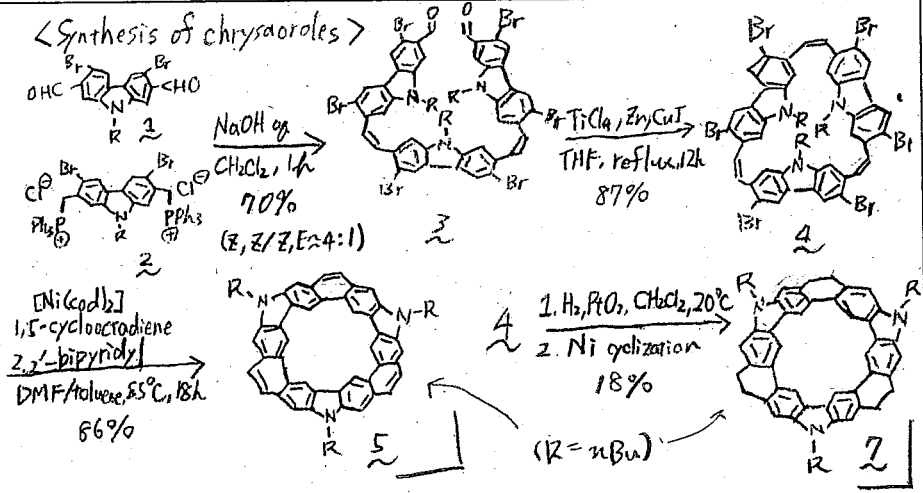 <Synthesis of chrysaoroles>
Br Br
OHC CHO
N
R
1
Br Br
Cl⊖ Cl⊖
Ph₃P⊕ PPh₃⊕
N
R
2
NaOH aq
CH₂Cl₂, 1h
70%
(Z,Z/Z,E≈4:1)
Br O O Br
N-R R N
Br R Br
N
Br Br
3
TiCl₄, Zn, CuI
THF, reflux, 12h
87%
Br Br
N-R R N
Br R Br
N
Br Br
4
[Ni(cod)₂]
1,5-cyclooctadiene
2,2'-bipyridyl
DMF/toluene, 55°C, 18h
86%
R N N R
N
R
5
4
1. H₂, PtO₂, CH₂Cl₂, 20°C
2. Ni cyclization
18%
(R = nBu)
R N N R
N
R
7